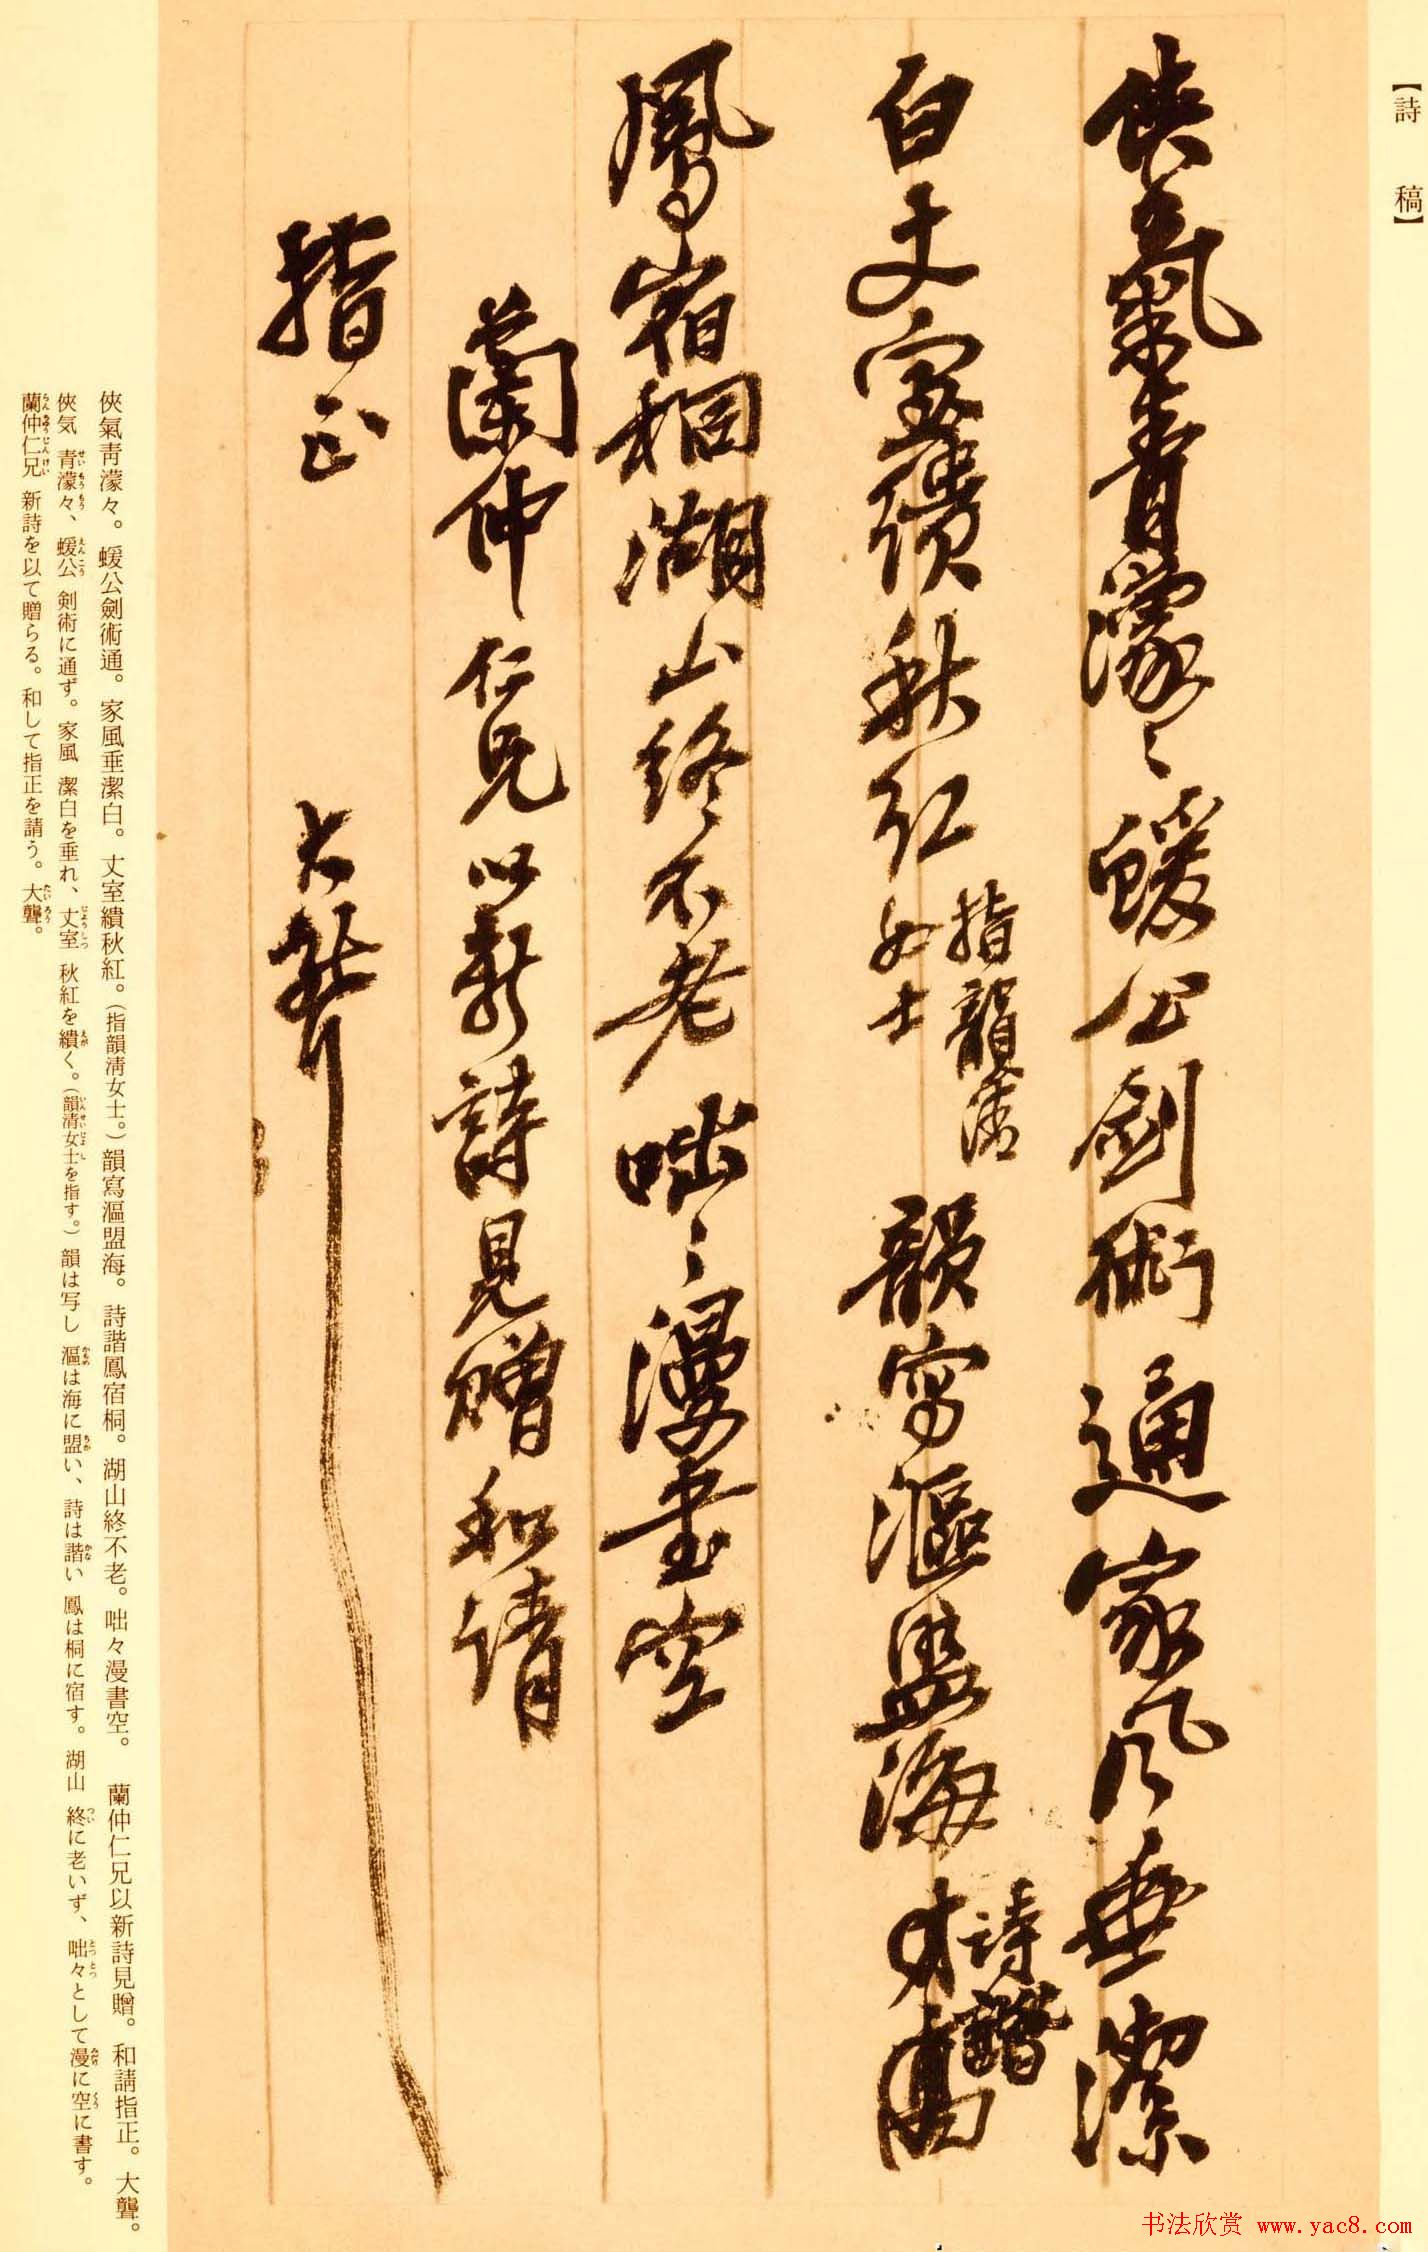 【詩稿】
俠氣青濛〻蝯公劍術通家風垂潔
白丈室繢秋紅指韻清女士韻寫漚盟海詩諧
鳳宿桐湖山終不老咄〻漫書空
蘭仲仁兄以新詩見贈和請
指正
大聾
俠氣靑濛々。蝯公劍術通。家風垂潔白。丈室繢秋紅。（指韻淸女士。）韻寫漚盟海。詩諧鳳宿桐。湖山終不老。咄々漫書空。 蘭仲仁兄以新詩見贈。和請指正。大聾。
俠気 青濛々、蝯公 剣術に通ず。家風 潔白を垂れ、丈室 秋紅を繢く。（韻清女士を指す。）韻は写し 漚は海に盟い、詩は諧い 鳳は桐に宿す。湖山 終に老いず、咄々として漫に空に書す。
蘭仲仁兄 新詩を以て贈らる。和して指正を請う。大聾。
书法欣赏 www.yac8.com